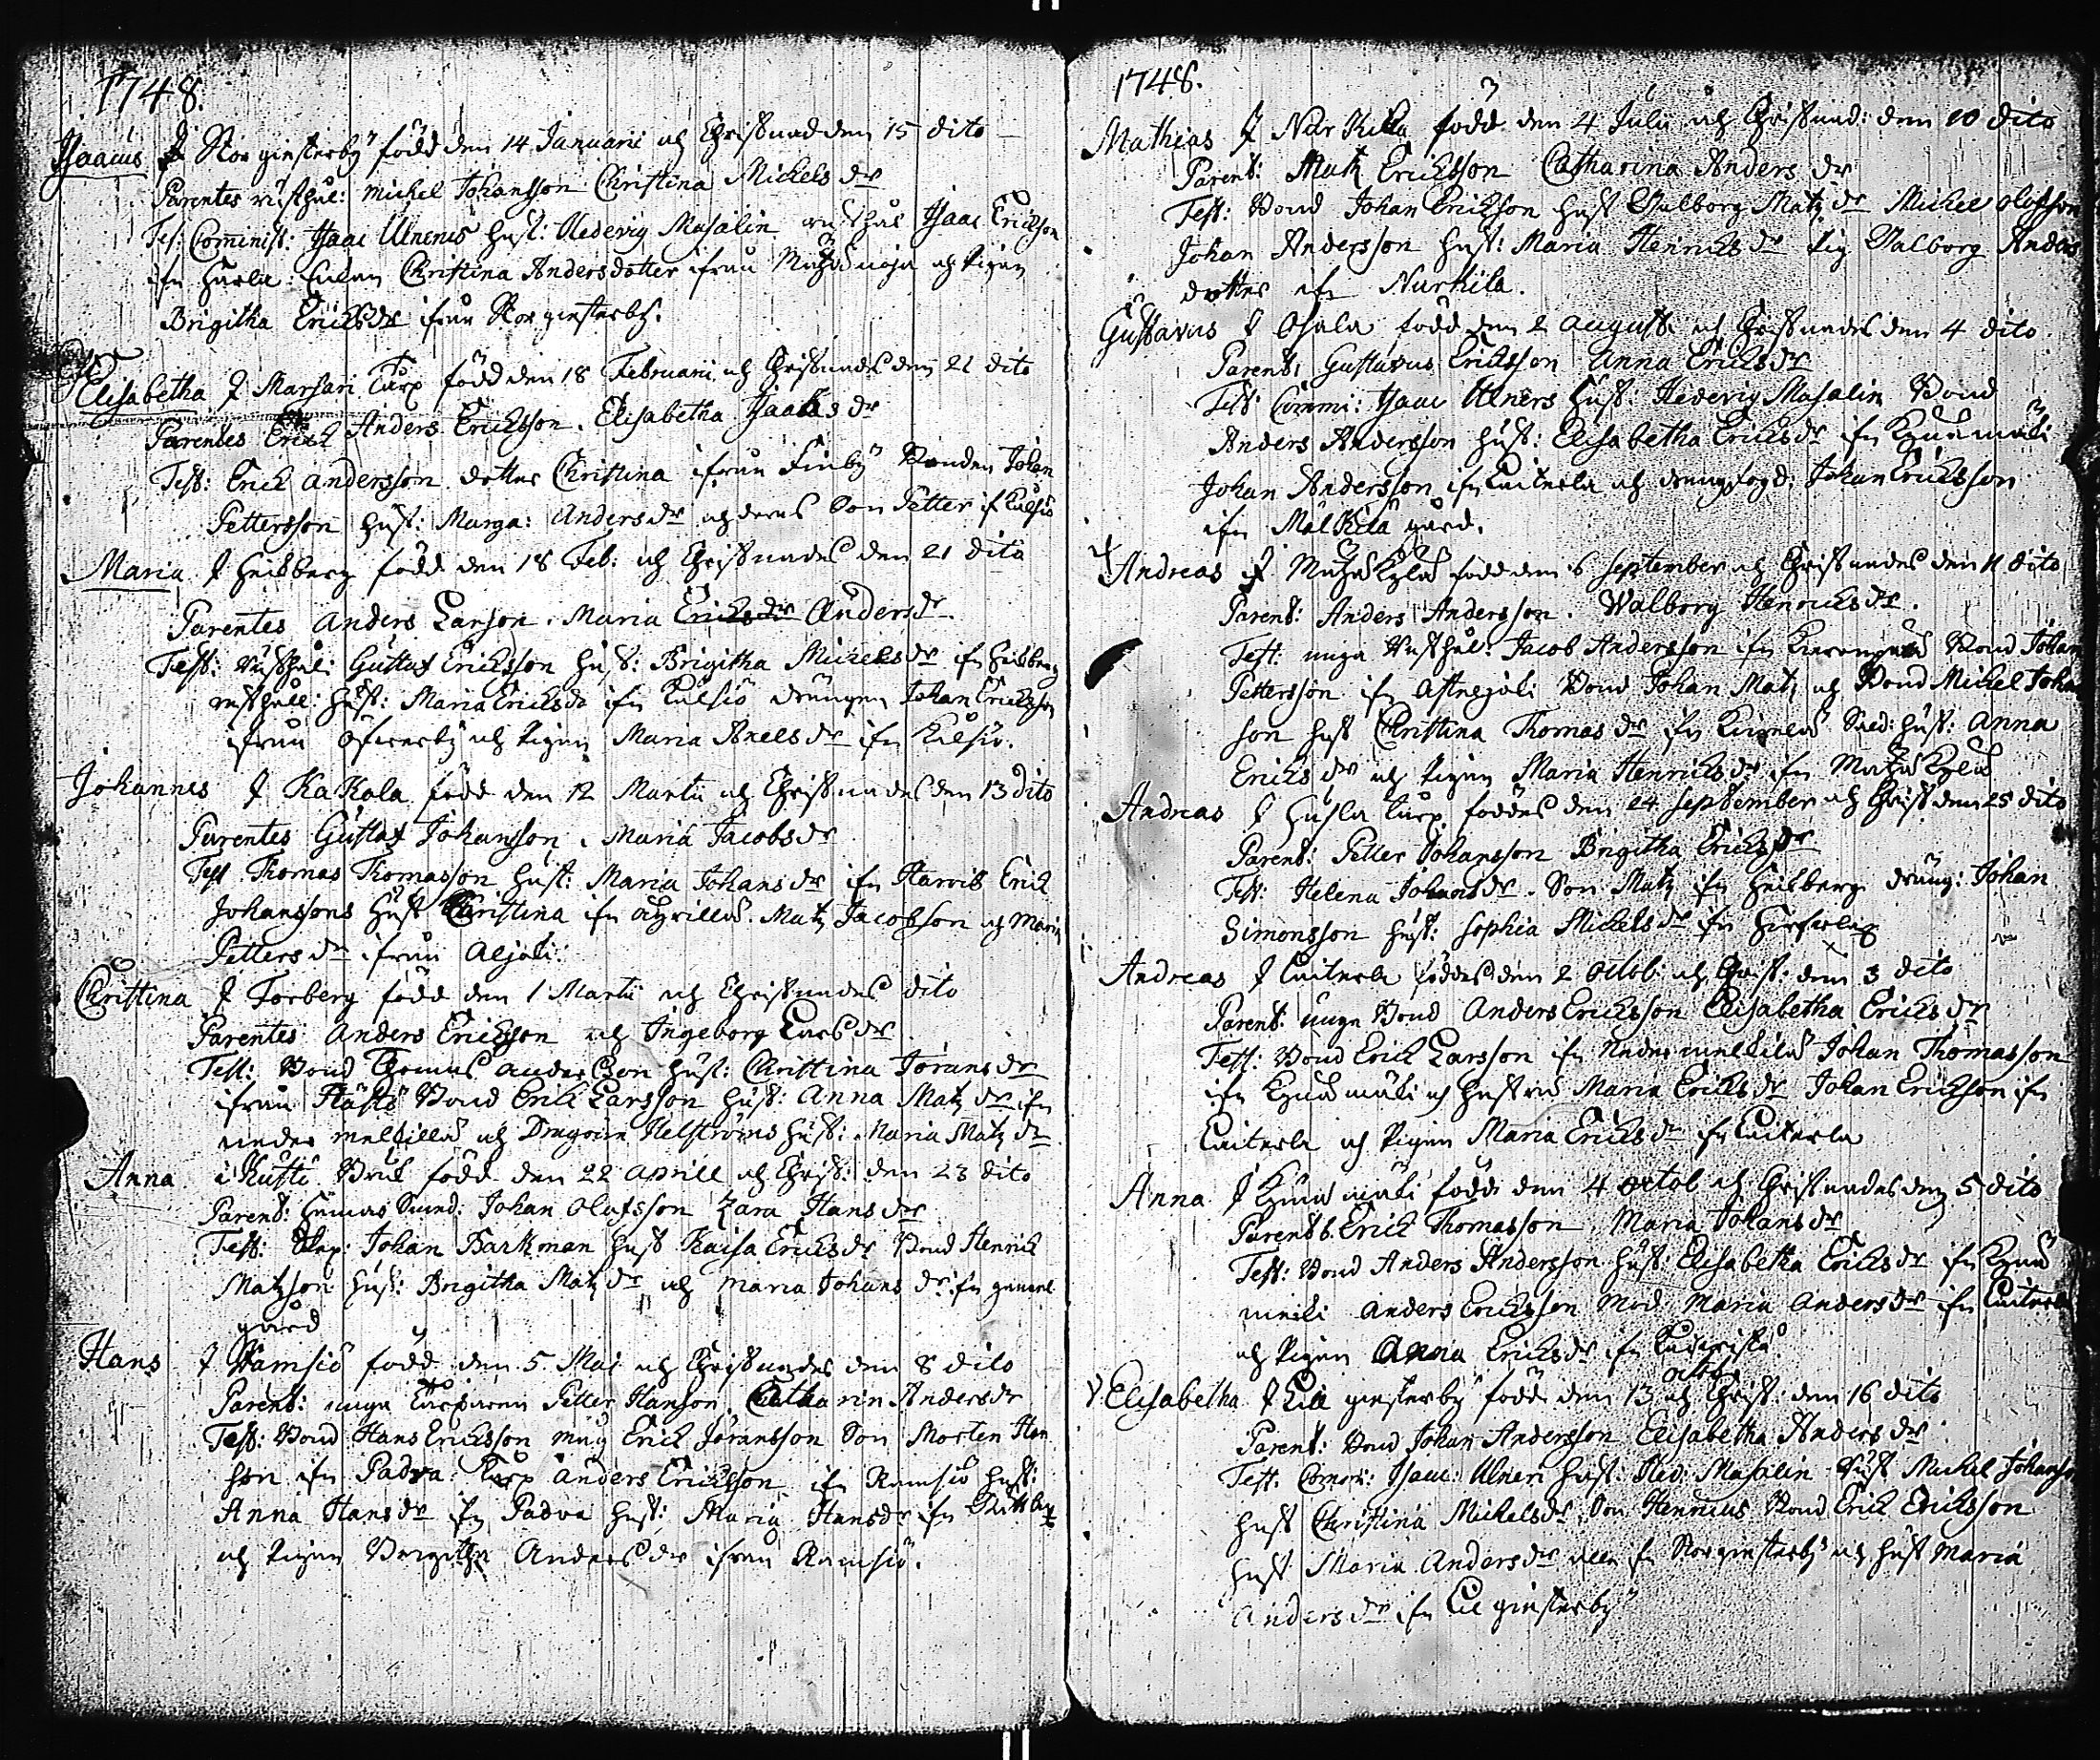 1748.
Isaacus I Storginsterby född den 14 Januarii och Christnad den 15 dito
Parentes rusthål: Michel Johansson Christina Michels dr
Test: Comminist: Isaac Ulnerus hust: Hedevig Masalin rusthål Isaac Ericksson
ifr Christina Andersdotter ifrån och pigan
Brigitha Ericksdr ifrån Storginsterby.
Elisabetha I Marsari Torp född den 18 Februarii och Christnades den 21 dito
Parentes Erick Anders Ericksson. Elisabetha Isaaks dr
Test: Erick Andersson dotter Christina ifrån Finby Bonden Johan
Pettersson hust: Marga: Andersdr och deras Son Petter if Kulsiö
Maria I Heisberg född den 18 Feb: och Christnades den 21 dito
Parentes Anders Larson. Maria Ericksdr Andersdr.
Test: rusthål: Gustaf Ericksson hust: Brigitha Mickelsdr ifr Heisberg
rusthåll: hust: Maria Ericksdr ifr Kulsiö drängen Johan Ericksson
ifrån Öfverby och pigan Maria Axelsdr ifr Kulsiö.
Johannes I Kakola född den 12 Martii och Christnades den 13 dito
Parentes Gustaf Johansson. Maria Jacobsdr
Test Thomas Thomasson hust: Maria Johansdr ifr Harvis Erick
Johanssons hust Christina ifr Matz Jacobsson och Maria
Petters dr ifrån Aljoki.
Christina I Torberg född den 1 Martii och Christnades dito
Parentes Anders Ericksson och Ingeborg Larsdr
Test: Bond Thomas Andersson hust: Christina Göransdr
ifrån Bond Erick Larsson hust: Anna Matz dr ifr
neder melkillä och Dragoun Helströms hust: Maria Matz dr
Anna i Kusti Bruk född den 22 Aprill och Christ: den 23 dito
Parent: Hamar Smed: Johan Olofsson Zara Hans dr
Test: Johan Barkman hust Kaisa Ericksdr Bond Henrick
Matzson hust: Brigitha Matz dr och Maria Johans dr ifr gammel
gård
Hans I Ramsiö född den 5 Maj och Christnades den 8 dito
Parent: unga Torparen Petter Hanson. Catharin Andersdr
Test: Bond Hans Ericksson Erick Jöransson Son Morten Han
son ifr Padva Torp Anders Ericksson ifr Ramsiö hust:
Anna Hansdr ifr Padva hust: Maria Hansdr ifr
och pigan Brigitha Andersdr ifrån Ramsiö.
1748.
Mathias I Närkilla född den 4 Julii och Christnad: den 10 dito
Parent: Matz Ericksson Catharina Anders dr
Test: Bond Johan Ericksson hust Valborg Matz dr Michel Olofsson
Johan Andersson hust: Maria Henricks dr pig Valborg Anders
dotter ifr Nurkila.
Gustavus I Ojala född den 2 Augusti och Christnades den 4 dito.
Parent: Gustavus Ericksson Anna Ericksdr
Test: Commi: Isaac Ulners hust: Hedevig Masalin Bond
Anders Andersson hust: Elisabetha Ericksdr ifr
Johan Andersson ifr Luiterla och drängfogd: Johan Ericksson
ifr Mälkilä gård.
Andreas I född den 6 September och Christnades den 11 dito
Parent: Anders Andersson. Walborg Henricksdr.
Test: unga Rusthål: Jacob Andersson ifr Bond Johan
Pettersson ifr Bond Johan Matz och Bond Michel Johan
son hust Christina Thomas dr ifr hust: Anna
Ericks dr och pigan Maria Henricksdr ifr
Andreas I Torp föddes den 24 September och Christ den 25 dito
Parent: Petter Johansson Brigitha Ericksdr
Test: Helena Johansdr. Son Matz ifr Heisberg dräng: Johan
Simonsson hust: Sophia Michelsdr ifr
Andreas I Luiterla föddes den 2 Octob: och Christ: den 3 dito
Parent: unga Bond Anders Ericksson Elisabetha Ericks dr
Test: Bond Erick Larsson ifr Neder melkilä Johan Thomasson
ifr och hustru Maria Ericks dr Johan Ericksson ifr
Luiterla och pigan Maria Ericksdr ifr Luiterla
Anna I född den 4 Octob och Christnades den 5 dito
Parents. Erick Thomasson Maria Johansdr
Test: Bond Anders Andersson hust: Elisabetha Ericksdr ifr
mäki Anders Ericksson Mod Maria Andersdr ifr Luiterla
och pigan Anna Ericksdr ifr
Elisabetha I Lill ginsterby född den 13 octob och Christ: den 16 dito
Parent: Bond Johan Andersson Elisabetha Anders dr
Test. Comm: Isaac: Ulneri hust: Hed: Masalin Rust Michel Johansson
hust Christina Mickelsdr Son Henricus Bond Erick Ericksson
hust Maria Andersdr alla ifr Storginsterby och hust Maria
Andersdr ifr Lil ginsterby